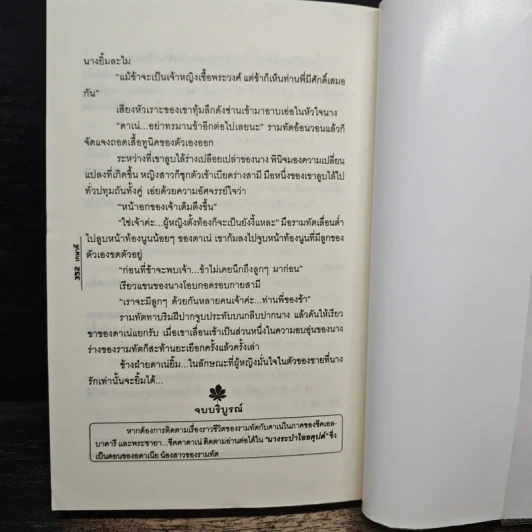 นางยิ้มละไม
"แม้ข้าจะเป็นเจ้าหญิงเชื้อพระวงศ์ แต่ข้าก็เห็นท่านพี่มีศักดิ์เสมอ
กัน"
เสียงหัวเราะของเขาทุ้มลึกดังซ่านเข้ามาอาบเอ่อในหัวใจนาง
"ดาเน่...อย่าทรมานข้าอีกต่อไปเลยนะ" รามทัตอ้อนวอนแล้วก็
จัดแจงถอดเสื้อทูนิคของตัวเองออก
ระหว่างที่เขาลูบไล้ร่างเปลือยเปล่าของนาง พินิจมองความเปลี่ยน
แปลงที่เกิดขึ้น หญิงสาวก็ซุกตัวเข้าเบียดร่างสามี มือหนึ่งของเขาลูบไล้ไป
ทั่วปทุมถันทั้งคู่ เอ่ยด้วยความอัศจรรย์ใจว่า
"หน้าอกของเจ้าเต็มตึงขึ้น"
"ใช่เจ้าค่ะ...ผู้หญิงตั้งท้องก็จะเป็นยังงี้แหละ" มือรามทัตเลื่อนต่ำ
ไปลูบหน้าท้องนูนน้อยๆ ของดาเน่ เขาก้มลงไปจูบหน้าท้องนูนที่มีลูกของ
ตัวเองขดตัวอยู่
"ก่อนที่ข้าจะพบเจ้า...ข้าไม่เคยนึกถึงลูกๆ มาก่อน"
เรียวแขนของนางโอบกอดรอบกายสามี
"เราจะมีลูกๆ ด้วยกันหลายคนเจ้าค่ะ...ท่านพี่ของข้า"
รามทัตทาบริมฝีปากจูบประทับบนกลีบปากนาง แล้วดันให้เรียว
ขาของดาเน่แยกรับ เมื่อเขาเลื่อนเข้าเป็นส่วนหนึ่งในความอบอุ่นของนาง
ร่างของรามทัตก็สะท้านยะเยือกครั้งแล้วครั้งเล่า
ข้างฝ่ายดาเน่ยิ้ม...ในลักษณะที่ผู้หญิงมั่นใจในตัวของชายที่นาง
รักเท่านั้นจะยิ้มได้...
จบบริบูรณ์
หากต้องการติดตามเรื่องราวชีวิตของรามทัตกับดาเน่ในภาคของชีคเอล-
บาคารี และพระชายา...ชีคคาดาเน่ ติดตามอ่านต่อได้ใน "นางระบำไอยคุปต์" ซึ่ง
เป็นตอนของอดาเนีย น้องสาวของรามทัต
352 เกษวดี